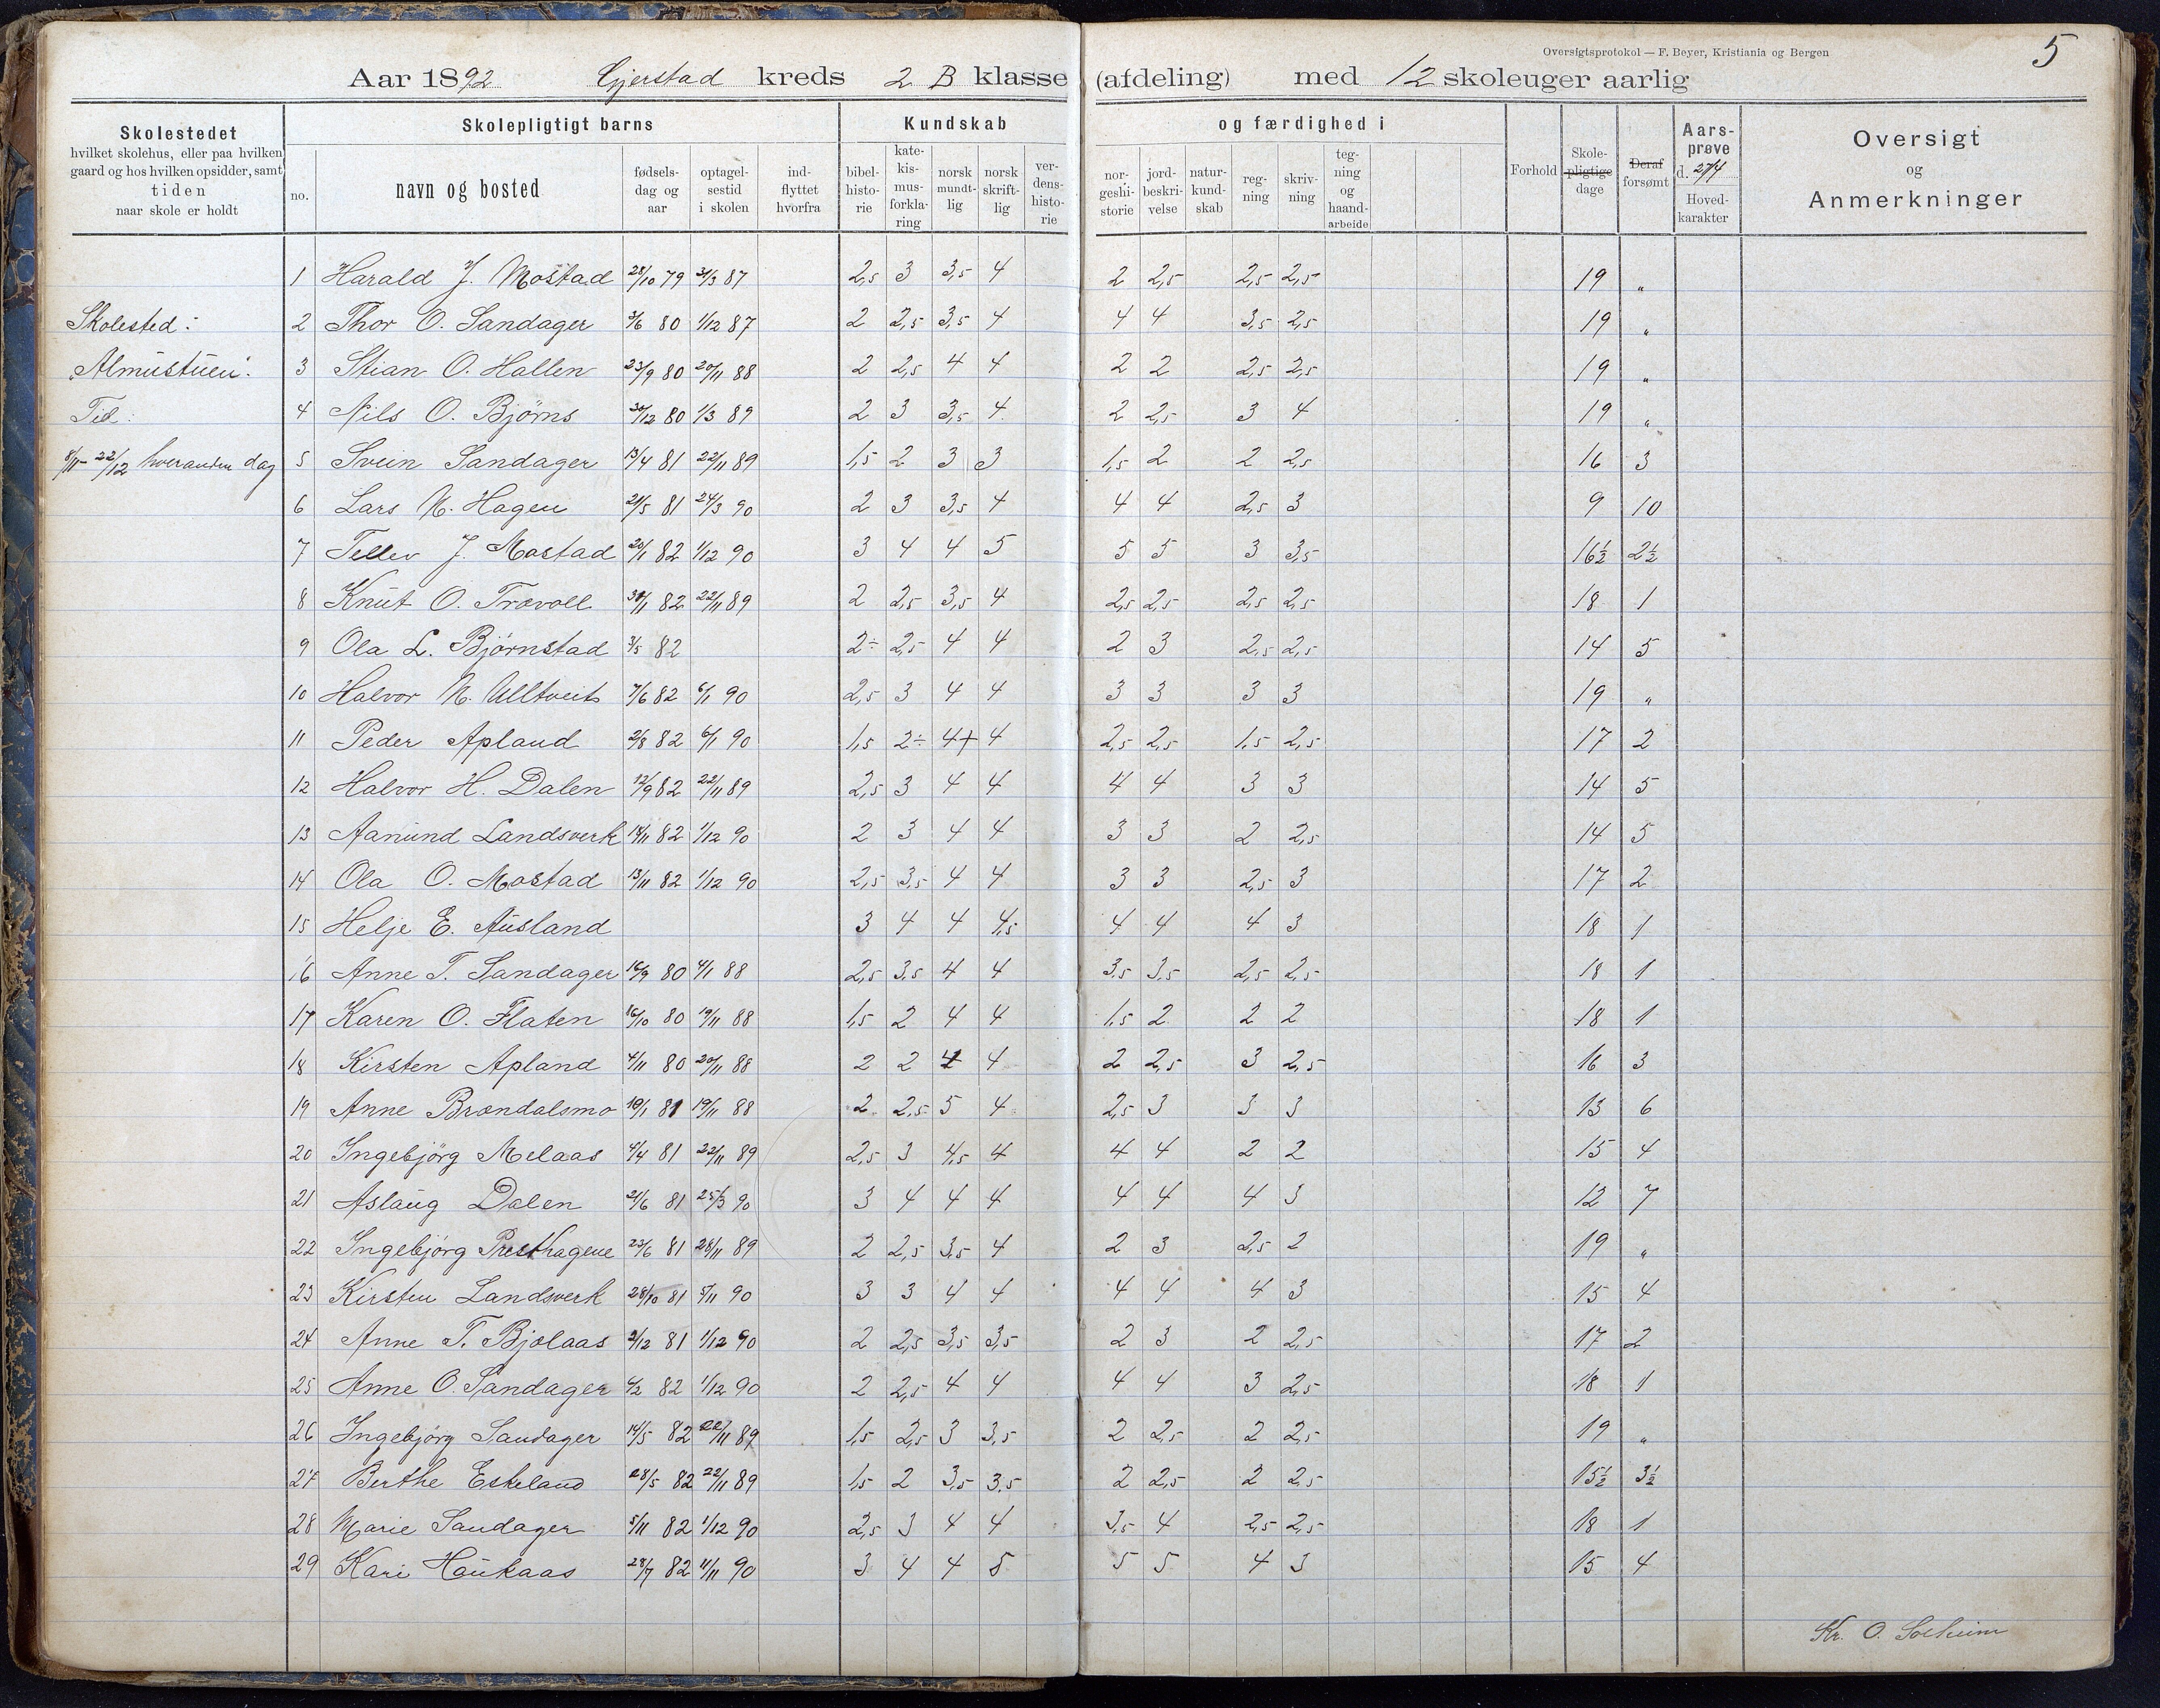 Oversigtsprotokol — F. Beyer, Kristiania og Bergen
5
Aar 1892 Gjerstad kreds 2 B klasse (afdeling) med 12 skoleuger aarlig
Skolestedet
hvilket skolehus, eller paa hvilken
gaard og hos hvilken opsidder, samt
tiden
naar skole er holdt
Skolepligtigt barns
no.
navn og bosted
fødsels-
dag og
aar
optagel-
sestid
i skolen
ind-
flyttet
hvorfra
Kundskab
bibel-
histo-
rie
kate-
kis-
mus-
forkla-
ring
norsk
mundt-
lig
norsk
skrift-
lig
ver-
dens-
histo-
rie
og færdighed i
nor-
geshi-
storie
jord-
beskri-
velse
natur-
kund-
skab
reg-
ning
skriv-
ning
teg-
ning
og
haand-
arbeide
Forhold
Skole-
pligtige
dage
Deraf
forsømt
Aars-
prøve
d. 27/4
Hoved-
karakter
Oversigt
og
Anmerkninger
1 Harald J. Mostad 28/10 79 31/3 87 2,5 3 3,5 4 2 2,5 2,5 2,5 19 "
Skolested: 2 Thor O. Sandager 3/6 80 1/12 87 2 2,5 3,5 4 4 4 3,5 2,5 19 "
"Almustuen". 3 Stian O. Hallen 23/9 80 20/11 88 2 2,5 4 4 2 2 2,5 2,5 19 "
Tid: 4 Nils O. Bjørns 30/12 80 1/3 89 2 3 3,5 4 2 2,5 3 4 19 "
8/11 - 22/12 hveranden dag 5 Svein Sandager 13/4 81 22/11 89 1,5 2 3 3 1,5 2 2 2,5 16 3
6 Lars N. Hagen 21/5 81 24/3 90 2 3 3,5 4 4 4 2,5 3 9 10
7 Tellev J. Mostad 20/1 82 1/12 90 3 4 4 5 5 5 3 3,5 16½ 2½
8 Knut O. Trævoll 30/1 82 22/11 89 2 2,5 3,5 4 2,5 2,5 2,5 2,5 18 1
9 Ola L. Bjørnstad 3/5 82 2÷ 2,5 4 4 2 3 2,5 2,5 14 5
10 Halvor N. Ulltveit 7/6 82 6/1 90 2,5 3 4 4 3 3 3 3 19 "
11 Peder Apland 2/8 82 6/1 90 1,5 2÷ 4+ 4 2,5 2,5 1,5 2,5 17 2
12 Halvor H. Dalen 12/9 82 22/11 89 2,5 3 4 4 4 4 3 3 14 5
13 Aanund Landsverk 14/11 82 1/12 90 2 3 4 4 3 3 2 2,5 14 5
14 Ola O. Mostad 13/11 82 1/12 90 2,5 3,5 4 4 3 3 2,5 3 17 2
15 Helje E. Ausland 3 4 4 4,5 4 4 4 3 18 1
16 Anne T. Sandager 16/9 80 4/1 88 2,5 3,5 4 4 3,5 3,5 2,5 2,5 18 1
17 Karen O. Flaten 16/10 80 19/11 88 1,5 2 4 4 1,5 2 2 2 18 1
18 Kirsten Apland 4/11 80 20/11 88 2 2 4 4 2 2,5 3 2,5 16 3
19 Anne Brændalsmo 10/1 81 19/11 88 2 2,5 5 4 2,5 3 3 3 13 6
20 Ingebjørg Melaas 4/4 81 22/11 89 2,5 3 4,5 4 4 4 2 2 15 4
21 Aslaug Dalen 21/6 81 25/3 90 3 4 4 4 4 4 4 3 12 7
22 Ingebjørg Presthagene 23/6 81 28/11 89 2 2,5 3,5 4 2 3 2,5 2 19 "
23 Kirsten Landsverk 28/10 81 5/11 90 3 3 4 4 4 4 4 3 15 4
24 Anne T. Bjolaas 2/12 81 1/12 90 2 2,5 3,5 3,5 2 3 2 2,5 17 2
25 Anne O. Sandager 6/2 82 1/12 90 2 2,5 4 4 4 4 3 2,5 18 1
26 Ingebjørg Sandager 14/5 82 22/11 89 1,5 2,5 3 3,5 2 2,5 2 2,5 19 "
27 Berthe Eskeland 28/5 82 22/11 89 1,5 2 3,5 3,5 2 2,5 2 2,5 15½ 3½
28 Marie Sandager 5/11 82 1/12 90 2,5 3 4 4 3,5 4 2,5 2,5 18 1
29 Kari Haukaas 28/7 82 11/11 90 3 4 4 5 5 5 4 3 15 4
Kr. O. Solheim